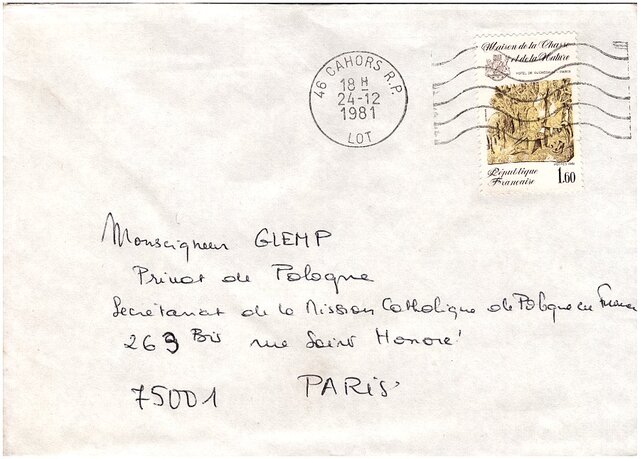 46 CAHORS R.P.
18 H
24-12
1981
LOT
Maison de la Chasse
et de la Nature
HOTEL DE GUENEGAUD - PARIS
République
Française
1,60
Monseigneur GLEMP
Primat de Pologne
Secrétariat de la Mission Catholique de Pologne en France
263 Bis rue Saint Honoré
75001 PARIS